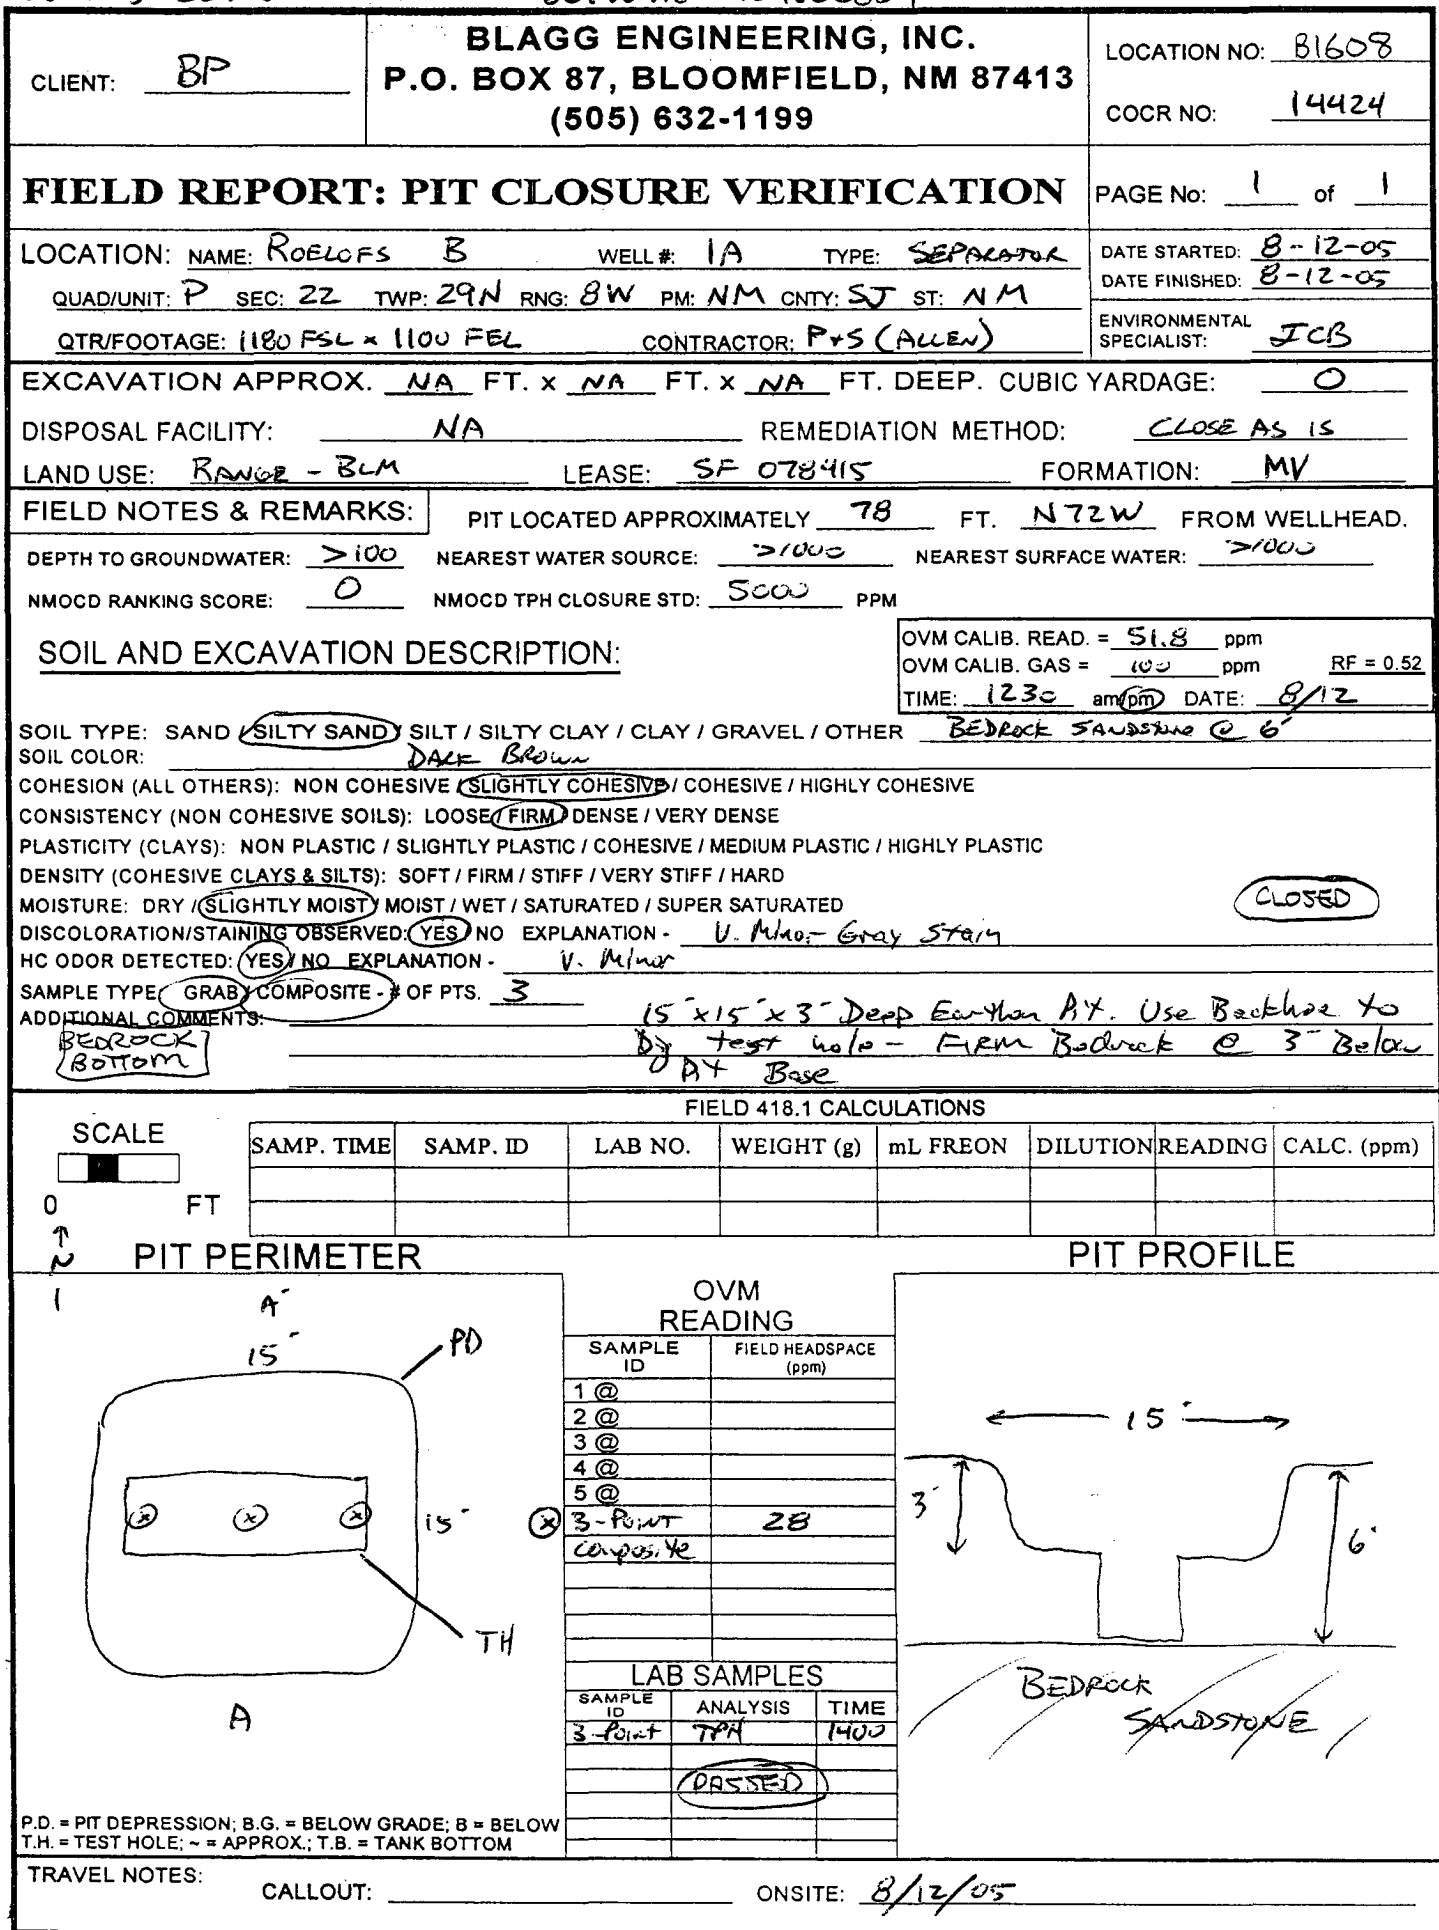 CLIENT: BP
BLAGG ENGINEERING, INC.
P.O. BOX 87, BLOOMFIELD, NM 87413
(505) 632-1199
LOCATION NO: B1608
COCR NO: 14424
FIELD REPORT: PIT CLOSURE VERIFICATION
PAGE No: 1 of 1
LOCATION: NAME: ROELOFS B WELL #: 1A TYPE: SEPARATOR
QUAD/UNIT: P SEC: 22 TWP: 29N RNG: 8W PM: NM CNTY: SJ ST: NM
QTR/FOOTAGE: 1180 FSL x 1100 FEL CONTRACTOR: P+S (ALLEN)
DATE STARTED: 8-12-05
DATE FINISHED: 8-12-05
ENVIRONMENTAL
SPECIALIST: JCB
EXCAVATION APPROX. NA FT. x NA FT. x NA FT. DEEP. CUBIC YARDAGE: 0
DISPOSAL FACILITY: NA REMEDIATION METHOD: CLOSE AS IS
LAND USE: RANGE - BLM LEASE: SF 078415 FORMATION: MV
FIELD NOTES & REMARKS: PIT LOCATED APPROXIMATELY 78 FT. N72W FROM WELLHEAD.
DEPTH TO GROUNDWATER: >100 NEAREST WATER SOURCE: >1000 NEAREST SURFACE WATER: >1000
NMOCD RANKING SCORE: 0 NMOCD TPH CLOSURE STD: 5000 PPM
SOIL AND EXCAVATION DESCRIPTION:
OVM CALIB. READ. = 51.8 ppm
OVM CALIB. GAS = 100 ppm RF = 0.52
TIME: 1230 am/pm DATE: 8/12
SOIL TYPE: SAND / SILTY SAND / SILT / SILTY CLAY / CLAY / GRAVEL / OTHER BEDROCK SANDSTONE @ 6'
SOIL COLOR: DARK BROWN
COHESION (ALL OTHERS): NON COHESIVE / SLIGHTLY COHESIVE / COHESIVE / HIGHLY COHESIVE
CONSISTENCY (NON COHESIVE SOILS): LOOSE / FIRM / DENSE / VERY DENSE
PLASTICITY (CLAYS): NON PLASTIC / SLIGHTLY PLASTIC / COHESIVE / MEDIUM PLASTIC / HIGHLY PLASTIC
DENSITY (COHESIVE CLAYS & SILTS): SOFT / FIRM / STIFF / VERY STIFF / HARD
MOISTURE: DRY / SLIGHTLY MOIST / MOIST / WET / SATURATED / SUPER SATURATED
CLOSED
DISCOLORATION/STAINING OBSERVED: YES / NO EXPLANATION - V. Minor Gray Stain
HC ODOR DETECTED: YES / NO EXPLANATION - V. Minor
SAMPLE TYPE: GRAB / COMPOSITE - # OF PTS. 3
ADDITIONAL COMMENTS: 15' x 15' x 3' Deep Earthen Pit. Use Backhoe to
BEDROCK Dig test hole - FIRM Bedrock @ 3' Below
BOTTOM Pit Base
FIELD 418.1 CALCULATIONS
SCALE
0 FT
SAMP. TIME SAMP. ID LAB NO. WEIGHT (g) mL FREON DILUTION READING CALC. (ppm)
N
PIT PERIMETER
A'
15'
PD
15'
TH
A
P.D. = PIT DEPRESSION; B.G. = BELOW GRADE; B = BELOW
T.H. = TEST HOLE; ~ = APPROX.; T.B. = TANK BOTTOM
OVM
READING
SAMPLE ID FIELD HEADSPACE (ppm)
1 @
2 @
3 @
4 @
5 @
3-Point 28
composite
LAB SAMPLES
SAMPLE ID ANALYSIS TIME
3-Point TPH 1400
PASSED
PIT PROFILE
15'
3'
6'
BEDROCK
SANDSTONE
TRAVEL NOTES:
CALLOUT: ONSITE: 8/12/05